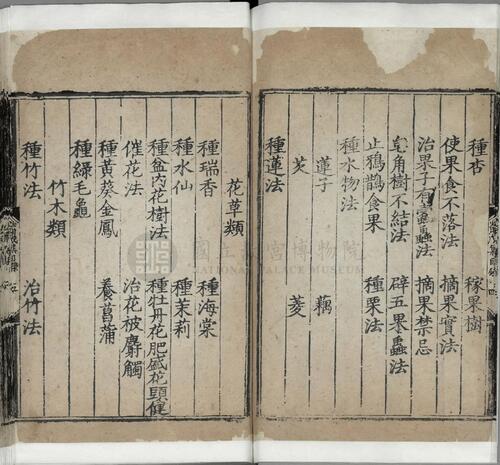 種杏 稼果樹
使果食不落法 摘果實法
治果子有蟲法 摘果禁忌
皂角樹不結法 辟五果蟲法
止鴉鵲食果 種栗法
種水物法
蓮子 藕
芡 菱
種蓮法
花草類
種瑞香 種海棠
種水仙 種茉莉
種盆內花樹法 種牡丹花肥盛花頭健
催花法 治花被麝觸
種黃葵金鳳 養菖蒲
種綠毛龜
竹木類
種竹法 治竹法
國立故宮博物院
NATIONAL PALACE MUSEUM